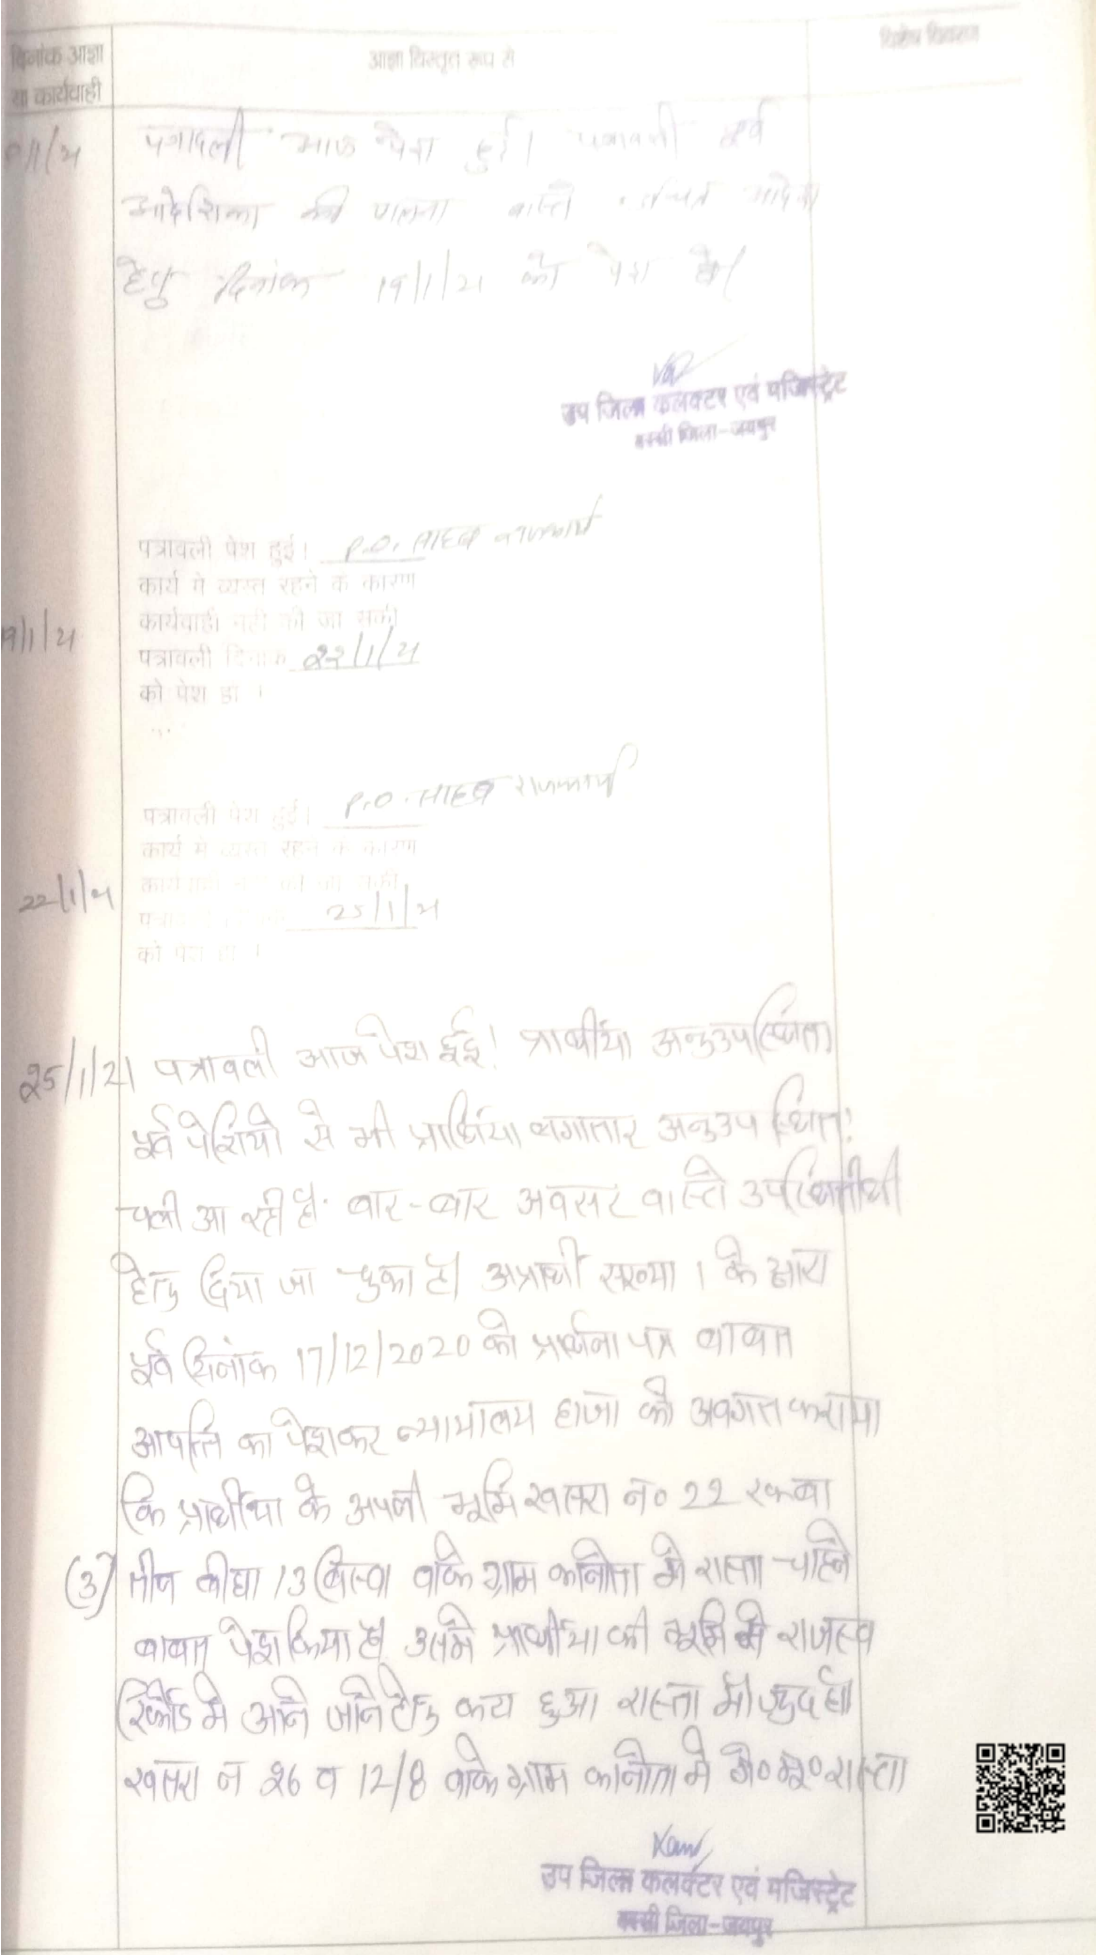 दिनांक आज्ञा
या कार्यवाही
आज्ञा विस्तृत रूप से
विशेष विवरण
पत्रावली आज पेश हुई। पत्रावली पूर्व
आदेशिका की पालना वास्ते उचित आदेश
हेतु दिनांक 19/1/21 को पेश हो।
उप जिला कलक्टर एवं मजिस्ट्रेट
बस्सी जिला-जयपुर
पत्रावली पेश हुई। P.O. साहब राजकार्य
कार्य मे व्यस्त रहने के कारण
कार्यवाही नही की जा सकी
19/1/21
पत्रावली दिनांक 22/1/21
को पेश हो ।
पत्रावली पेश हुई। P.O. साहब राजकार्य
कार्य मे व्यस्त रहने के कारण
कार्यवाही नही की जा सकी
22/1/21
25/1/21
को पेश हो ।
25/1/21 पत्रावली आज पेश हुई! प्रार्थीया अनुउपस्थित।
पूर्व पेशियो से भी प्रार्थिया लगातार अनुउपस्थित!
चली आ रही है। बार-बार अवसर वास्ते
हेतु दिया जा चुका है। अप्रार्थी संख्या 1 के द्वारा
पूर्व दिनांक 17/12/2020 को प्रार्थना पत्र बाबत
आपत्ति का पेशकर न्यायालय हाजा को अवगत कराया
कि प्रार्थीया के अपनी भूमि खसरा नं० 22 रकबा
(3) तीन बीघा 13 बिस्वा वाके ग्राम कानोता मे रास्ता चाहने
बाबत पेश किया है। उसमे प्रार्थीया की भूमि मे राजस्व
रिकॉर्ड मे आने जाने हेतु कटा हुआ रास्ता मौजुद है।
खसरा न 26 व 12/8 वाके ग्राम कानोता मे गै०मु० रास्ता
उप जिला कलक्टर एवं मजिस्ट्रेट
बस्सी जिला-जयपुर